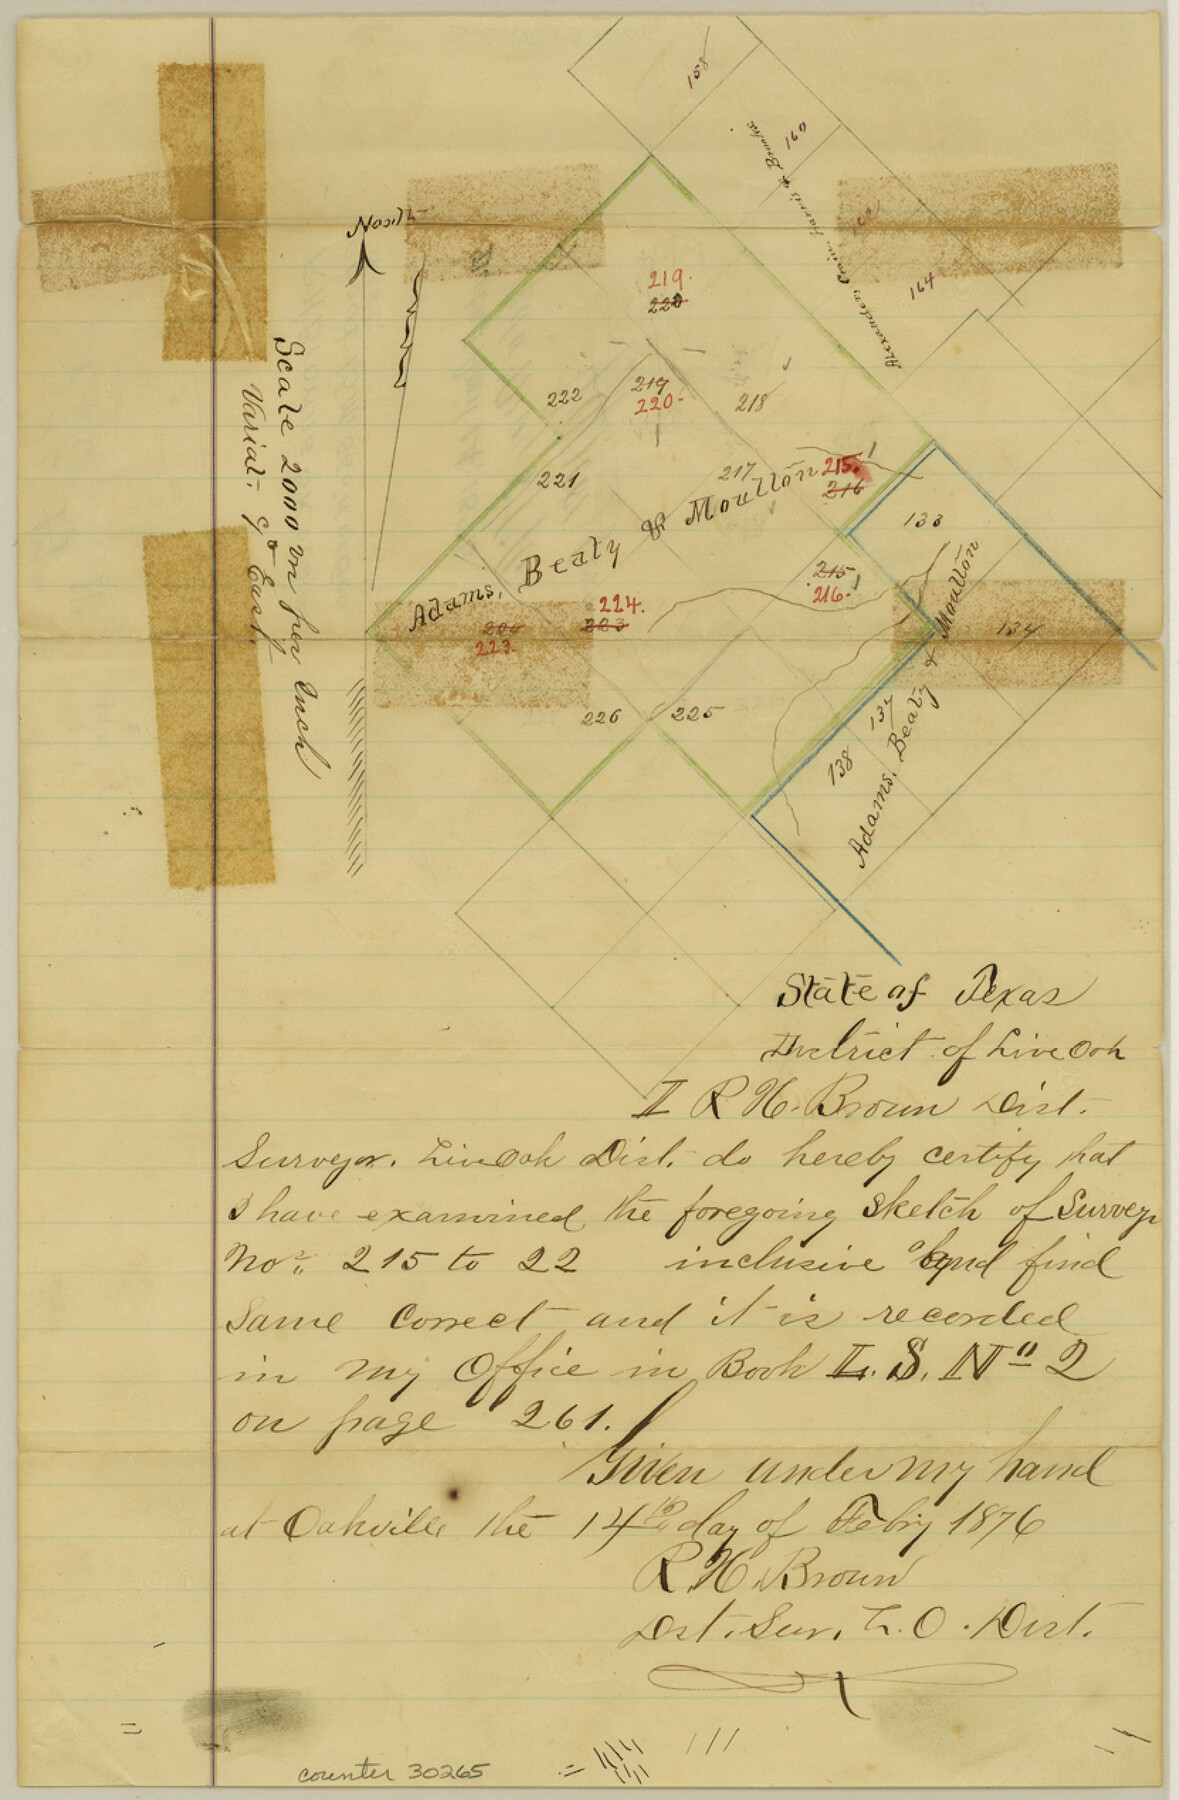 158
160
164
Alexander, Crain, Harris &
North
219.
220
222
219
220-
218
221
217
215.
216
133
Adams, Beaty & Moulton
215
216.
224.
223
204
223.
134
226
225
137
138
Adams, Beaty & Moulton
Scale 2000 vrs per Inch
Variat: 9° East.
State of Texas
District of Live Oak
I R. H. Brown Dist.
Surveyor. Live Oak Dist. do hereby certify that
I have examined the foregoing sketch of Surveys
Nos. 215 to 22 inclusive and find
same correct and it is recorded
in my Office in Book L. S. No 2
on page 261.
Given under my hand
at Oakville the 14th day of Febry 1876
R. H. Brown
Dst. Sur. L. O. Dist.
counter 30265